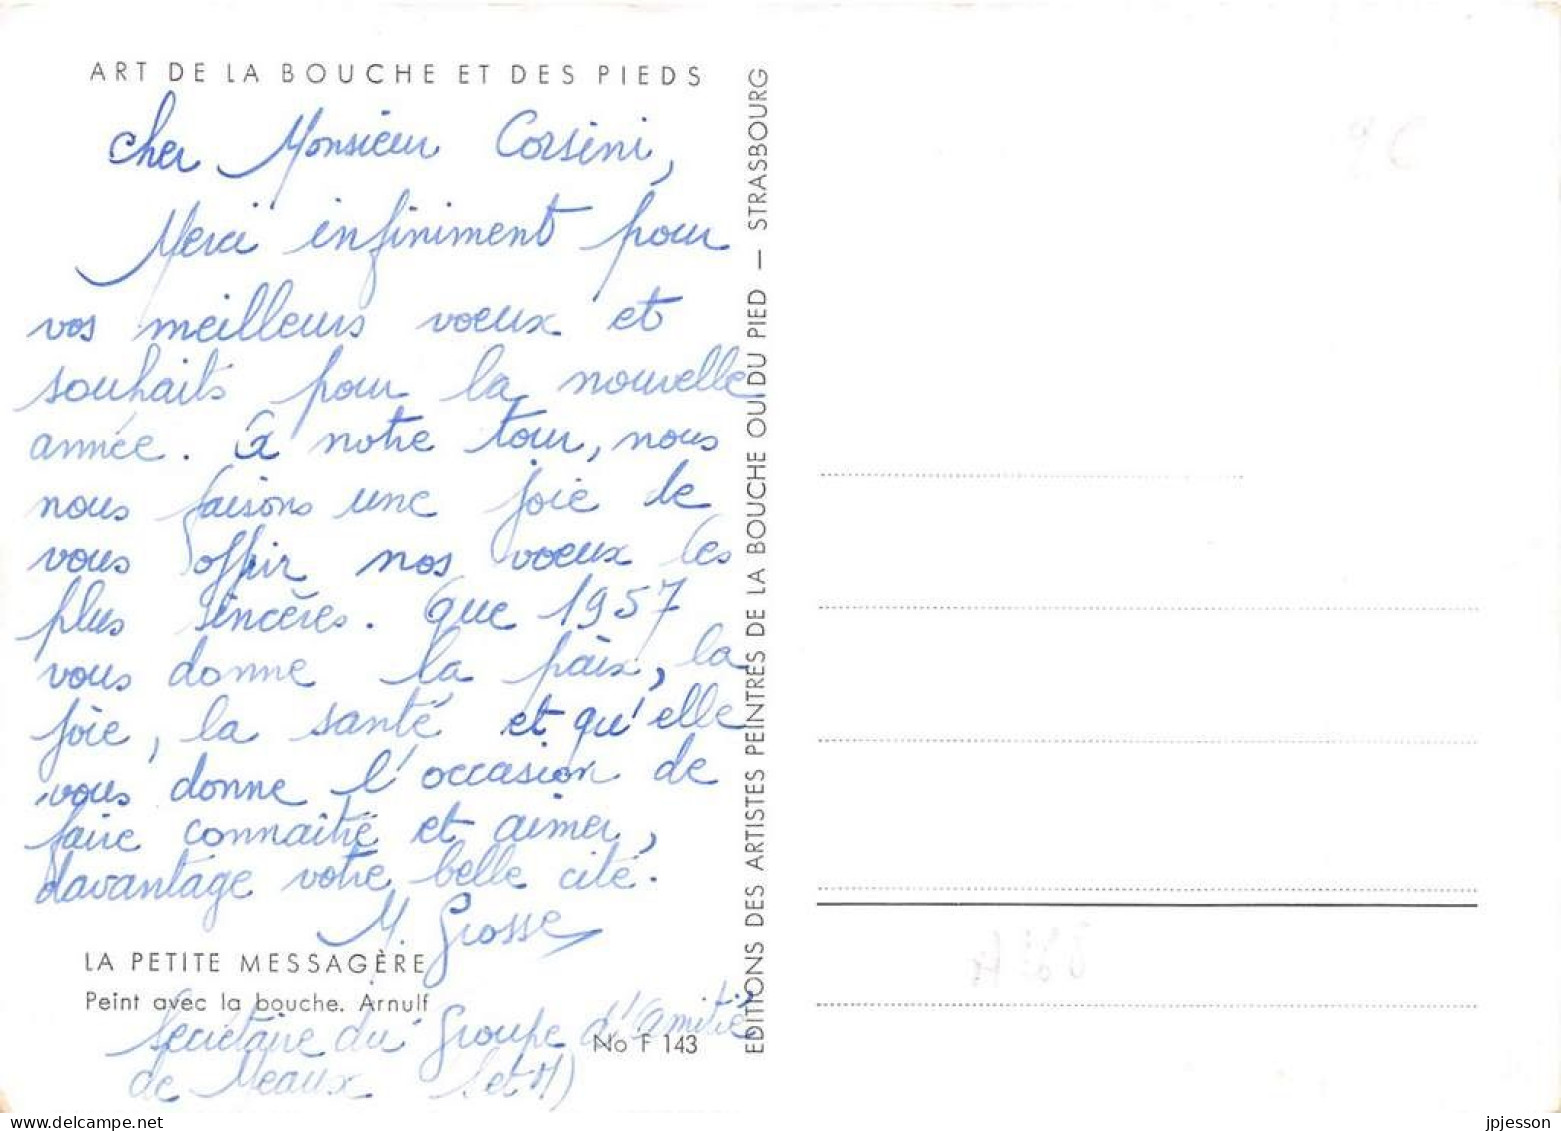 ART DE LA BOUCHE ET DES PIEDS
Cher Monsieur Corsini,
Merci infiniment pour
vos meilleurs voeux et
souhaits pour la nouvelle
année. A notre tour, nous
nous faisons une joie de
vous offrir nos voeux les
plus sincères. Que 1957
vous donne la paix, la
joie, la santé et qu'elle
vous donne l'occasion de
faire connaitre et aimer,
davantage votre belle cité.
M. Grosse
LA PETITE MESSAGÈRE
Peint avec la bouche. Arnulf
Secrétaire du Groupe d'Amitié
No F 143
de Meaux (S et M)
EDITIONS DES ARTISTES PEINTRES DE LA BOUCHE OU DU PIED — STRASBOURG
delcampe.net
jpjesson